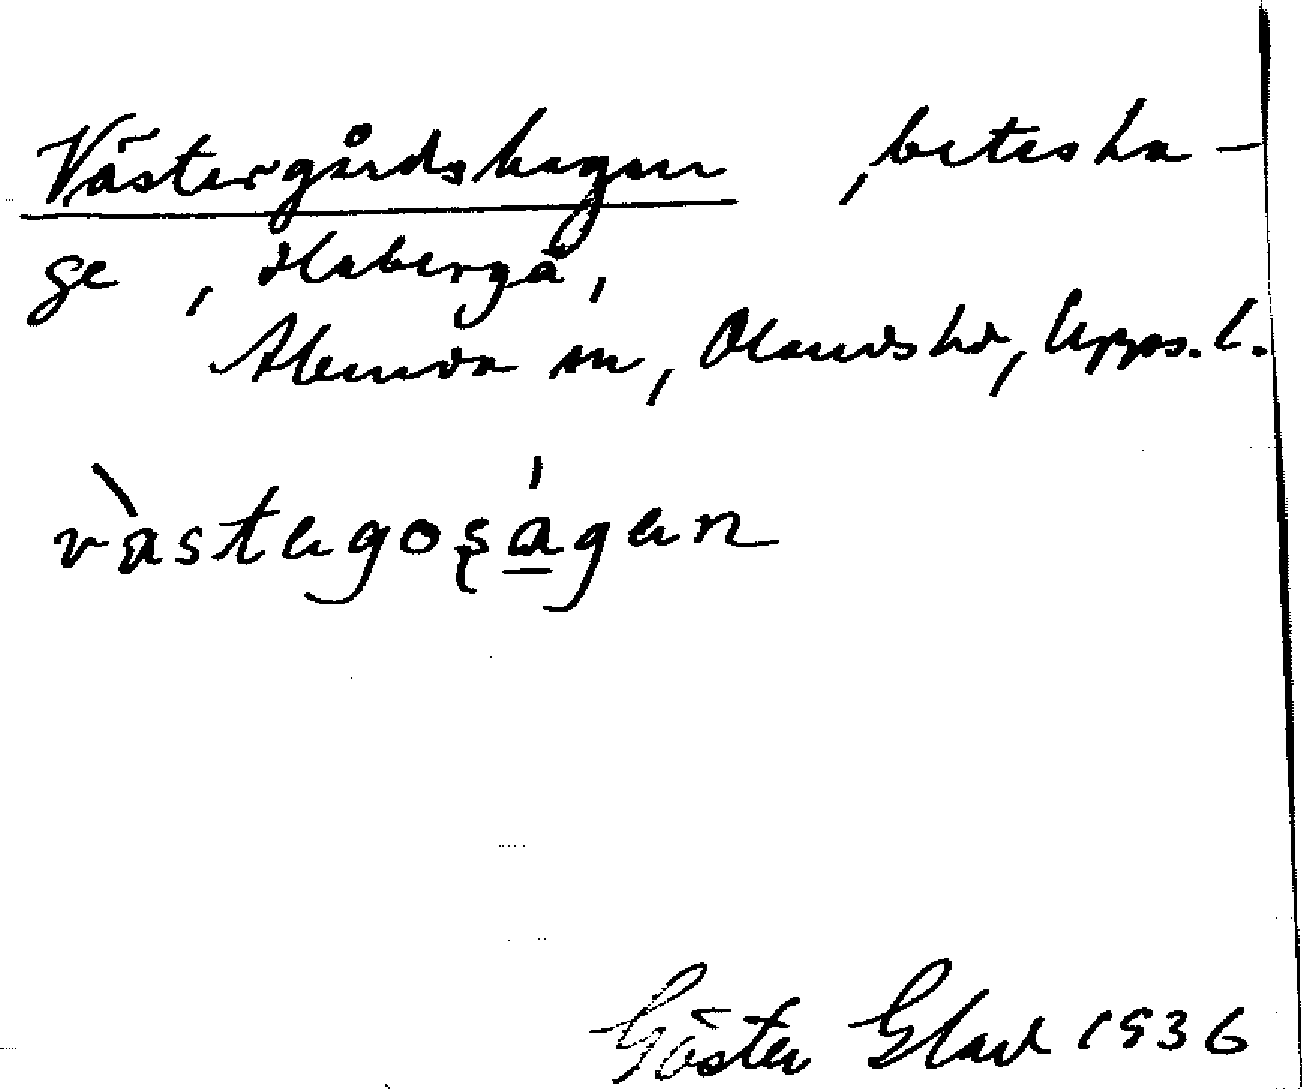 Västergårdshagen, betesha-
ge, Habergå,
Alunda sn, Olands hd, Upps. l.
vàstegoşágen
Gösta Glad 1936